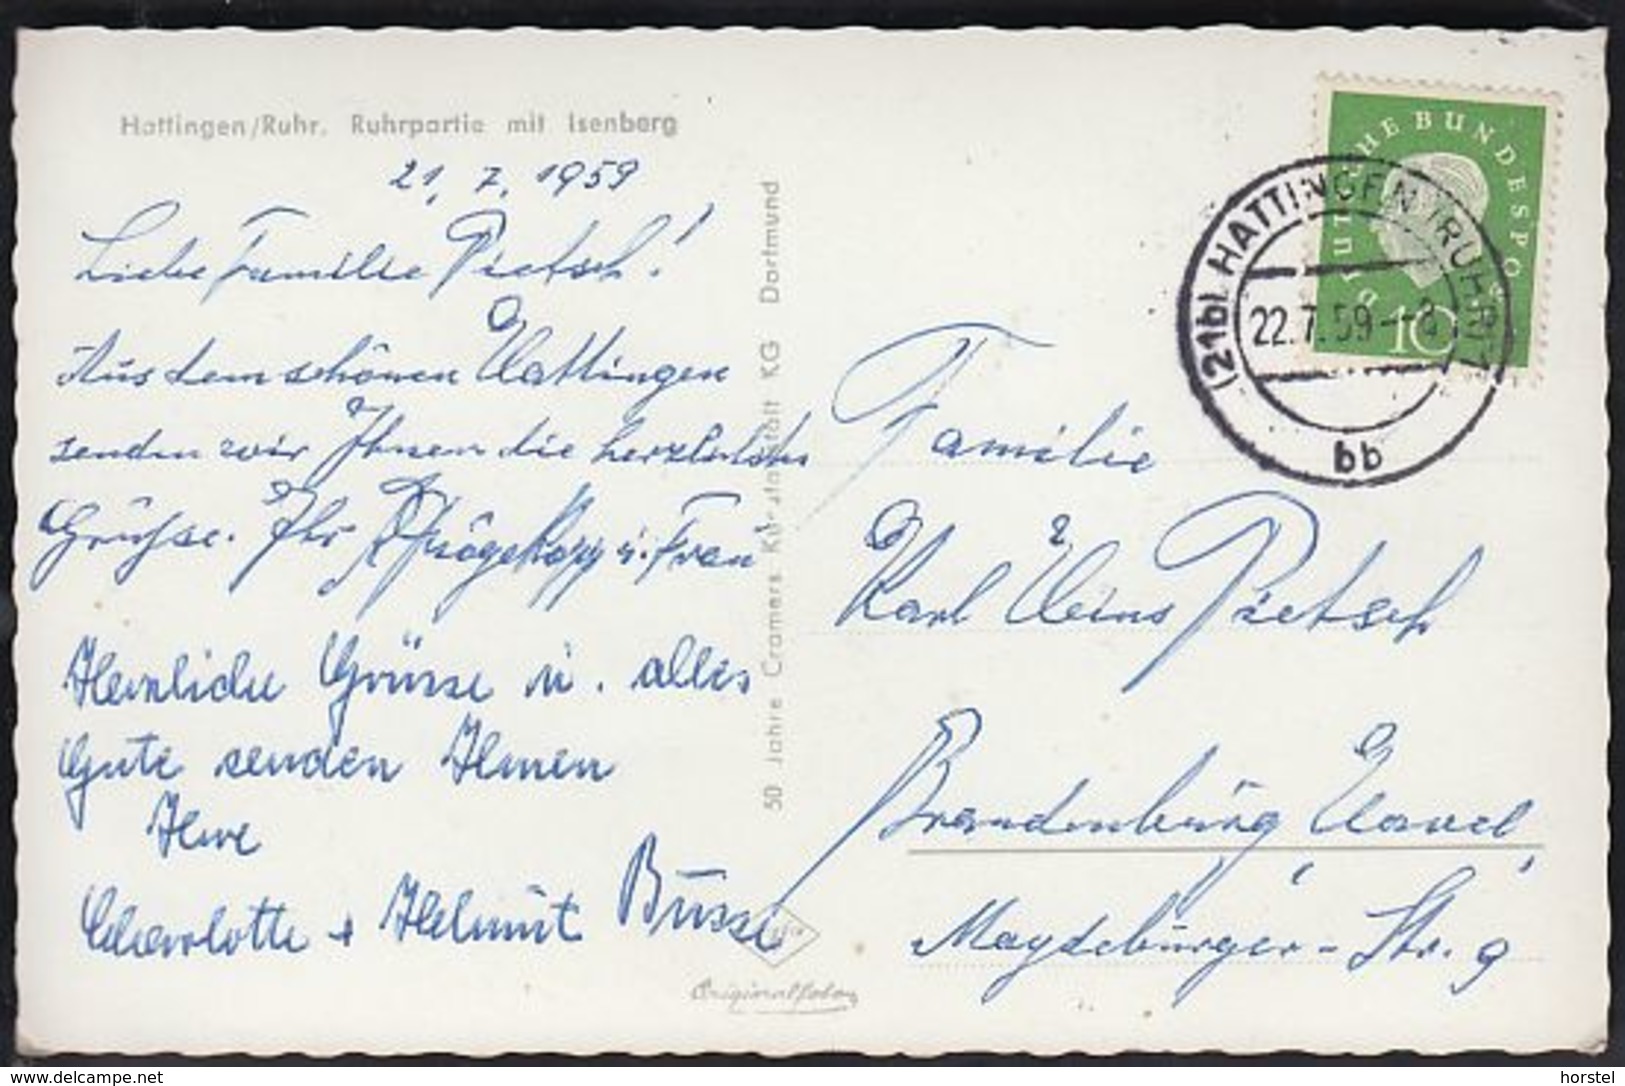 Hattingen/Ruhr. Ruhrpartie mit Isenberg
21. 7. 1959
Liebe Familie Pietsch!
Aus dem schönen Hattingen
senden wir Ihnen die herzlichsten
Grüsse. Ihr u. Frau
Herzliche Grüsse u. alles
Gute senden Ihnen
Ihre
Charlotte + Helmut Busse
50 Jahre Cramers Kunstanstalt KG Dortmund
Originalfoto
DEUTSCHE BUNDESPOST
10
(21b) HATTINGEN (RUHR) 1
22.7.59--8
bb
Familie
Karl Heinz Pietsch
Brandenburg Havel
Magdeburger-Str. 9
delcampe.net
horstel